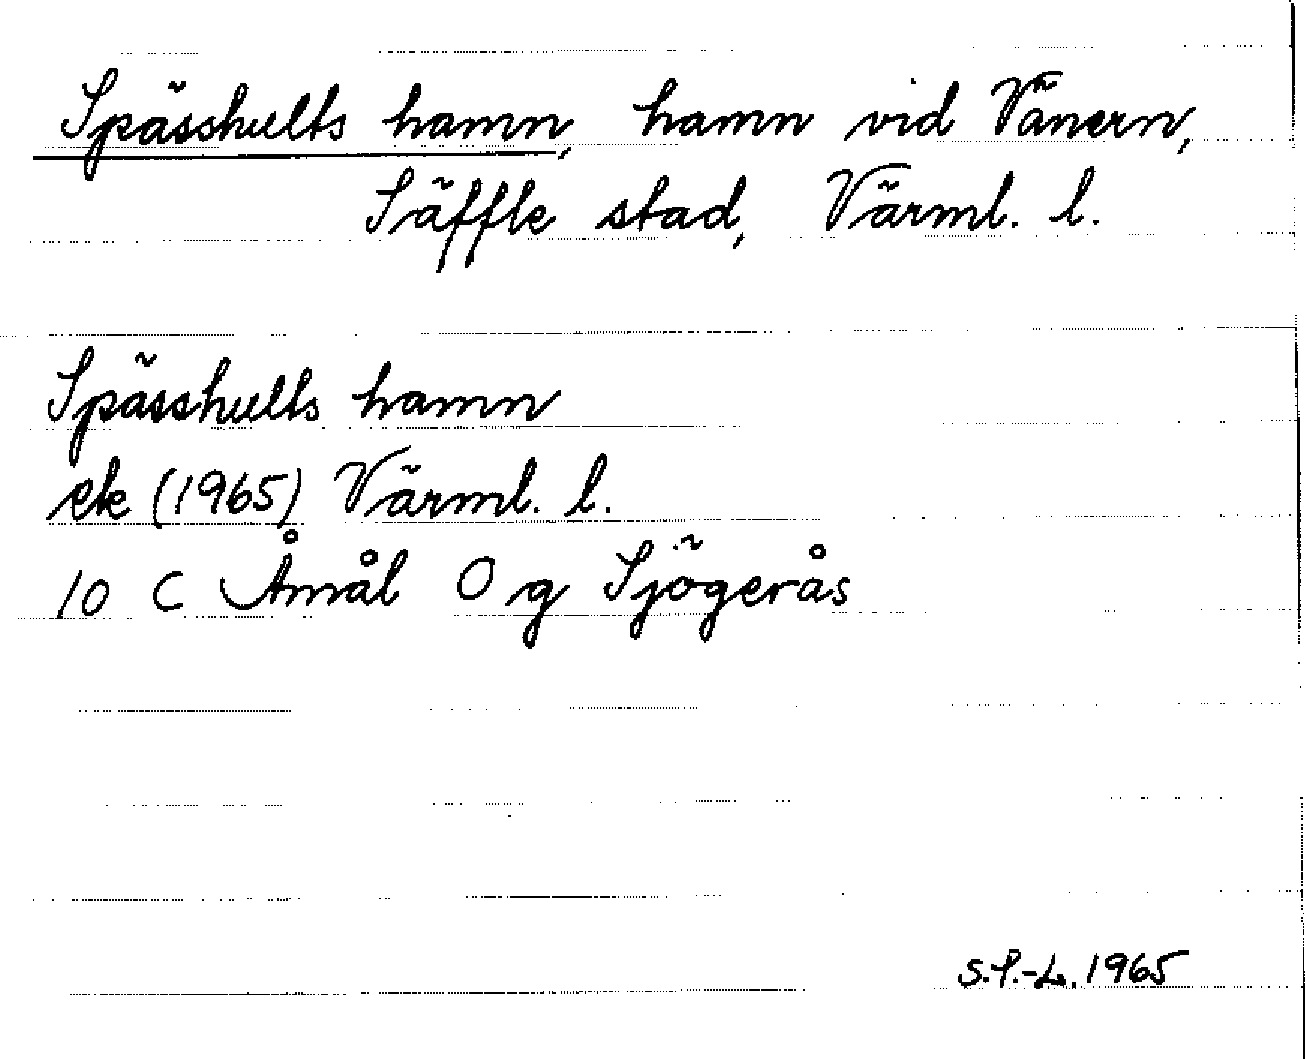 Spässhults hamn, hamn vid Vänern,
Säffle stad, Värml. l.
Spässhults hamn
ek (1965) Värml. l.
10 C Åmål O g Sjögerås
S.S.-L. 1965